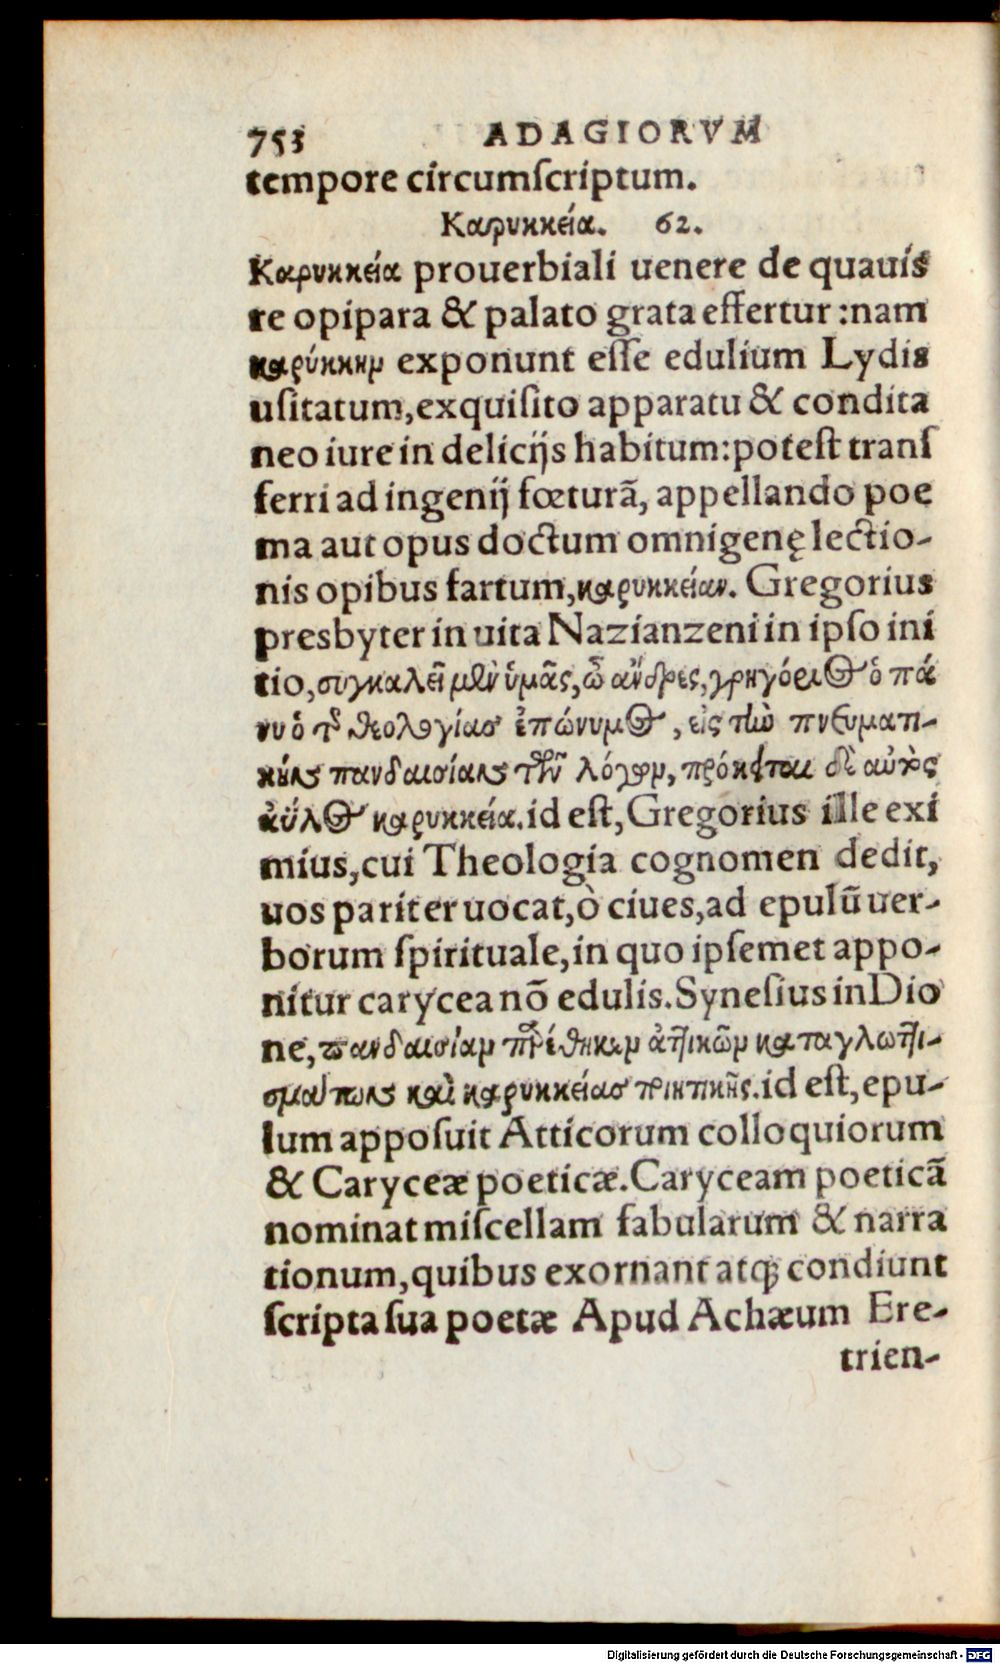 753 ADAGIORVM
tempore circumſcriptum.
Καρυκκεία. 62.
Καρυκκεία prouerbiali uenere de quauis
re opipara & palato grata effertur :nam
καρύκκην exponunt eſſe edulium Lydis
uſitatum,exquiſito apparatu & condita
neo iure in delicijs habitum:poteſt tranſ
ferri ad ingenij fœturã, appellando poe
ma aut opus doctum omnigenę lectio-
nis opibus fartum,καρυκκείαν. Gregorius
presbyter in uita Nazianzeni in ipſo ini
tio,συγκαλεῖ μὲν ὑμᾶς,ὦ ἄνδρες,γρηγόριος ὁ πά
νυ ὁ τῆς θεολογίας ἐπώνυμος , εἰς τὴν πνευματι-
κὴν πανδαισίαν τῶν λόγων, πρόκειται δὲ αὐτὸς
ἄϋλος καρυκκεία.id eſt,Gregorius ille exi
mius,cui Theologia cognomen dedit,
uos pariter uocat,ò ciues,ad epulũ uer-
borum ſpirituale,in quo ipſemet appo-
nitur carycea nõ edulis.Syneſius in Dio
ne,πανδαισίαν παρέθηκεν ἀττικῶν καταγλωττι-
σμάτων καὶ καρυκκείας ποιητικῆς.id eſt,epu-
lum appoſuit Atticorum colloquiorum
& Caryceæ poeticæ.Caryceam poeticã
nominat miſcellam fabularum & narra
tionum,quibus exornant atq; condiunt
ſcripta ſua poetæ Apud Achæum Ere-
trien-
Digitalisierung gefördert durch die Deutsche Forschungsgemeinschaft - DFG